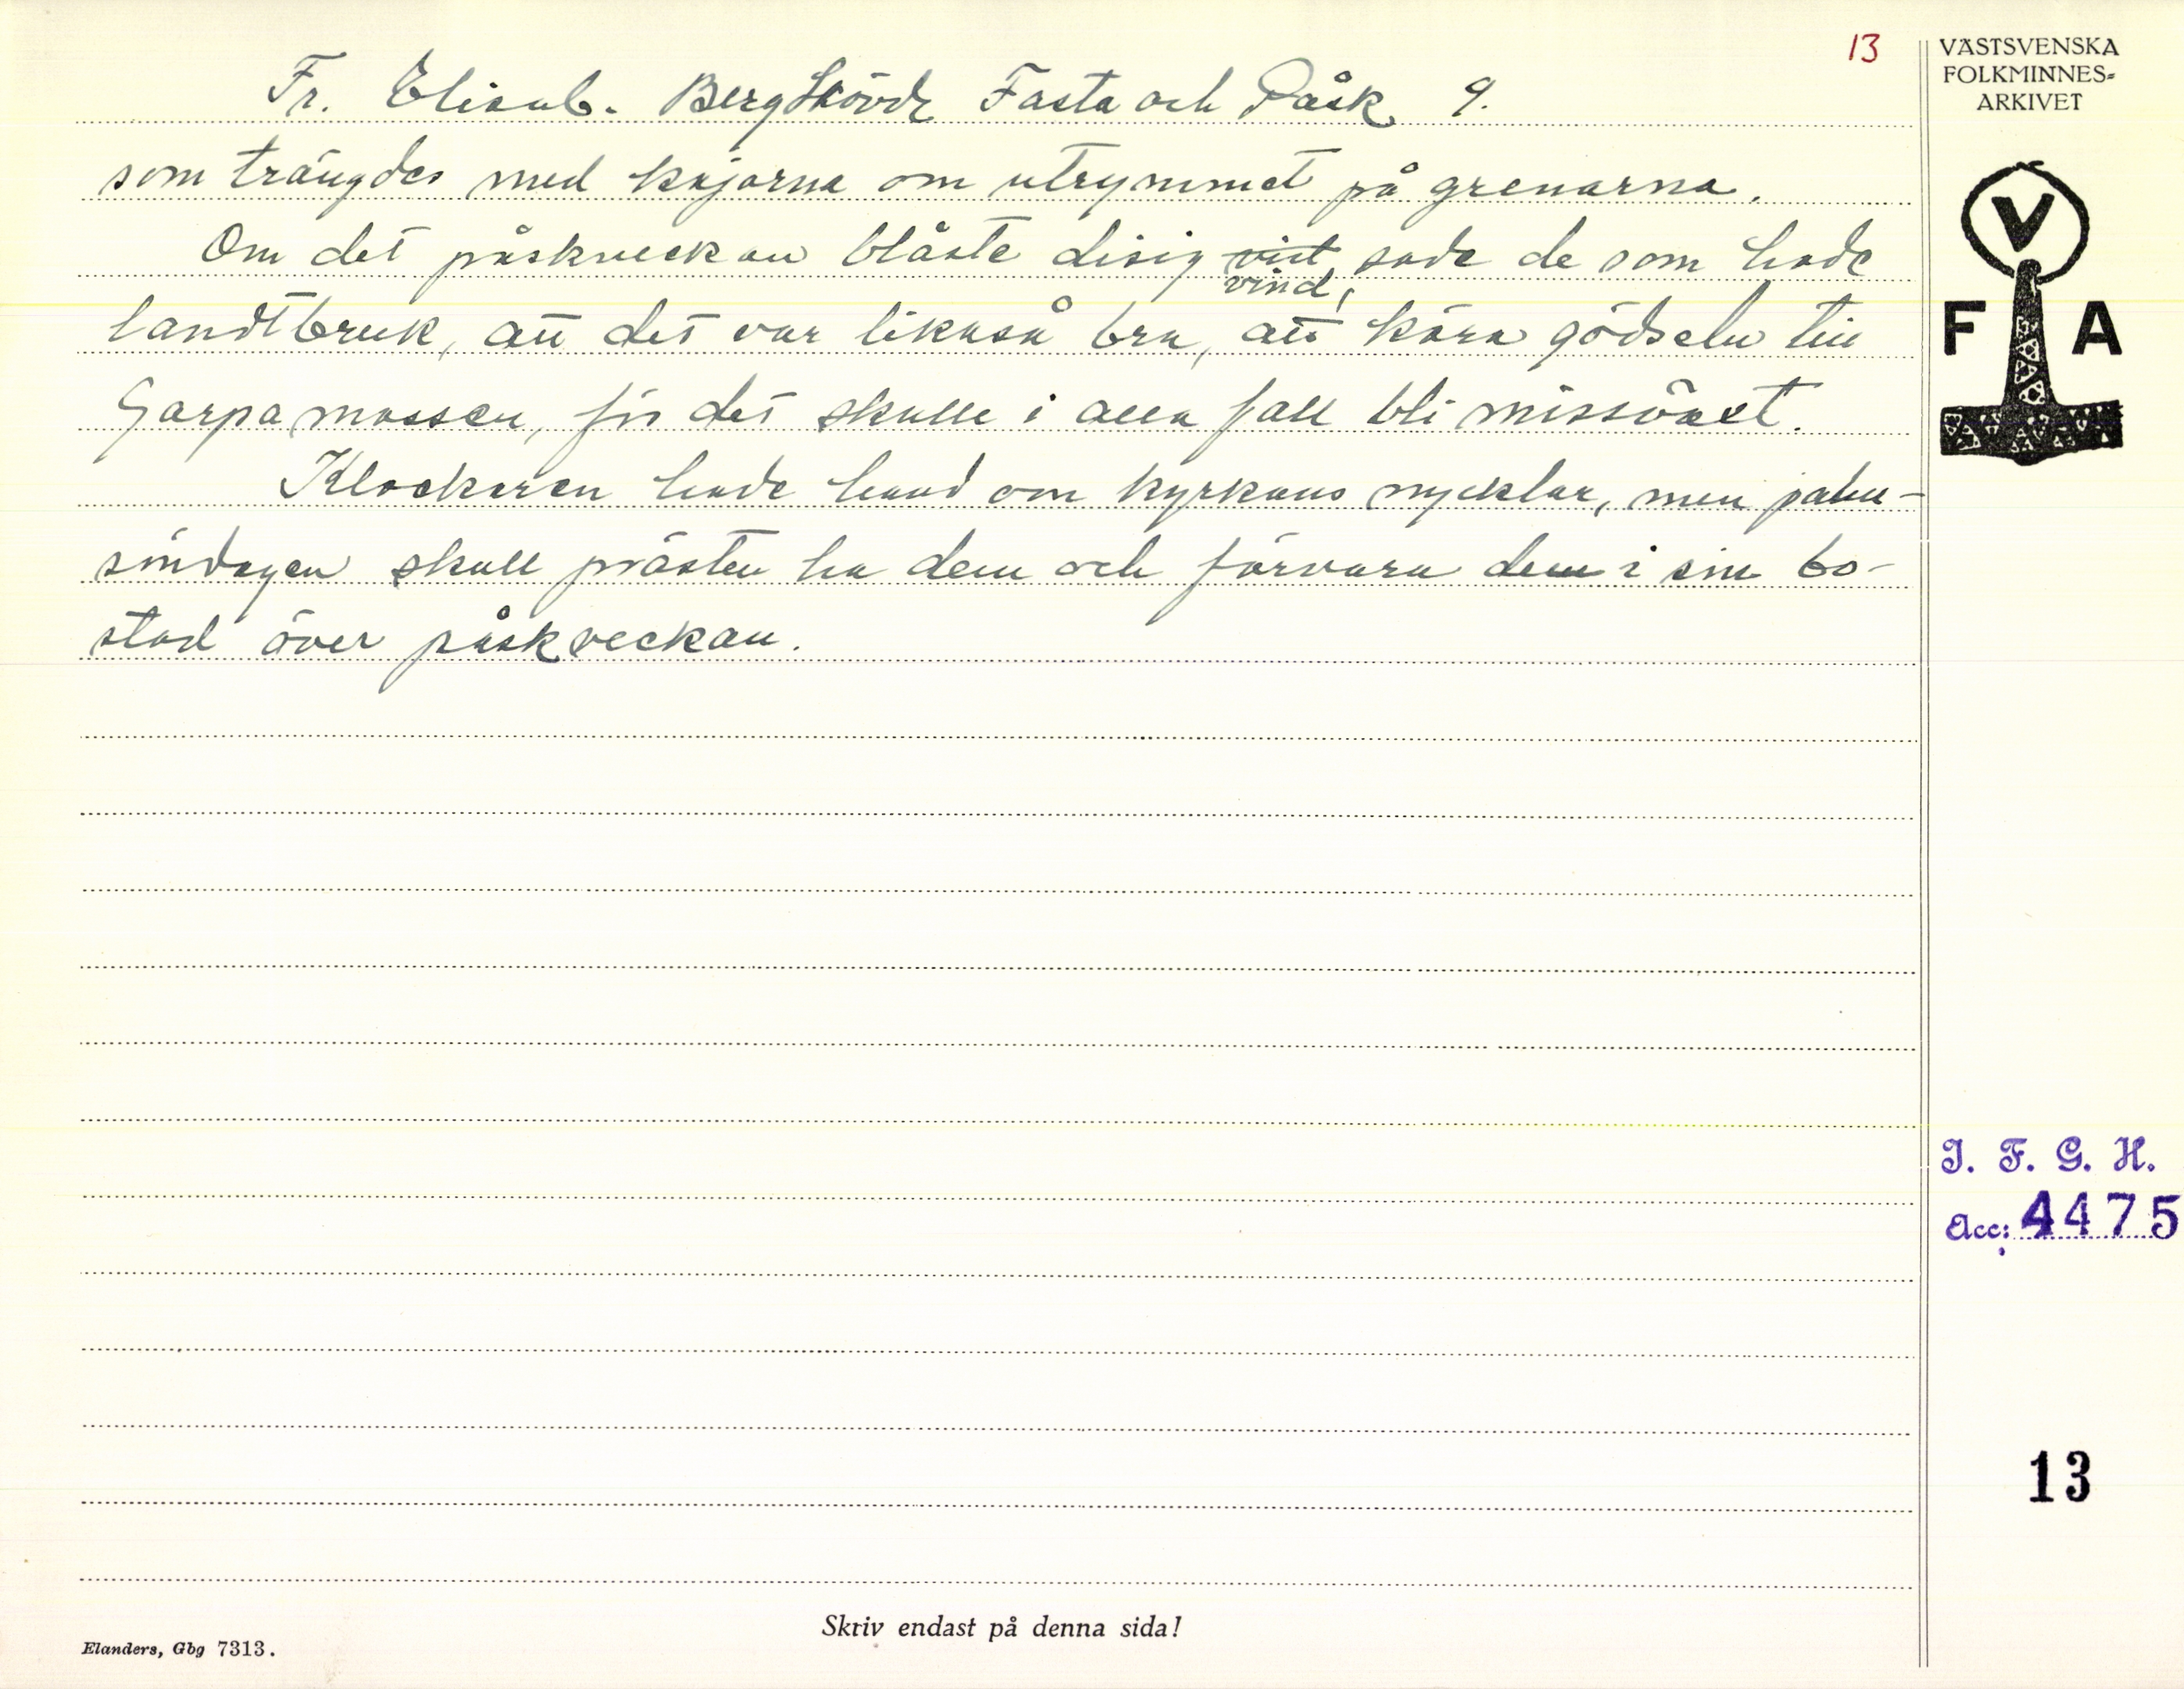 13
VÄSTSVENSKA
FOLKMINNES=
ARKIVET
Fr. Elisab. Berg Skövde Fasta och Påsk 9.
som trängdes med kajorna om utrymmet på grenarna.
Om det påskveckan blåste disig vist vind, sade de som hade
landtbruk, att det var likaså bra, att köra gödseln till
Garpamossen, för det skulle i alla fall bli missöxt.
Klockaren hade hand om kyrkans nycklar, men palm-
söndagen skull prästen ha dem och förvara dem i sin bo-
stad över påskveckan.
V
F A
I. F. G. H.
Acc: 4475
13
Skriv endast på denna sida!
Elanders, Gbg 7313.